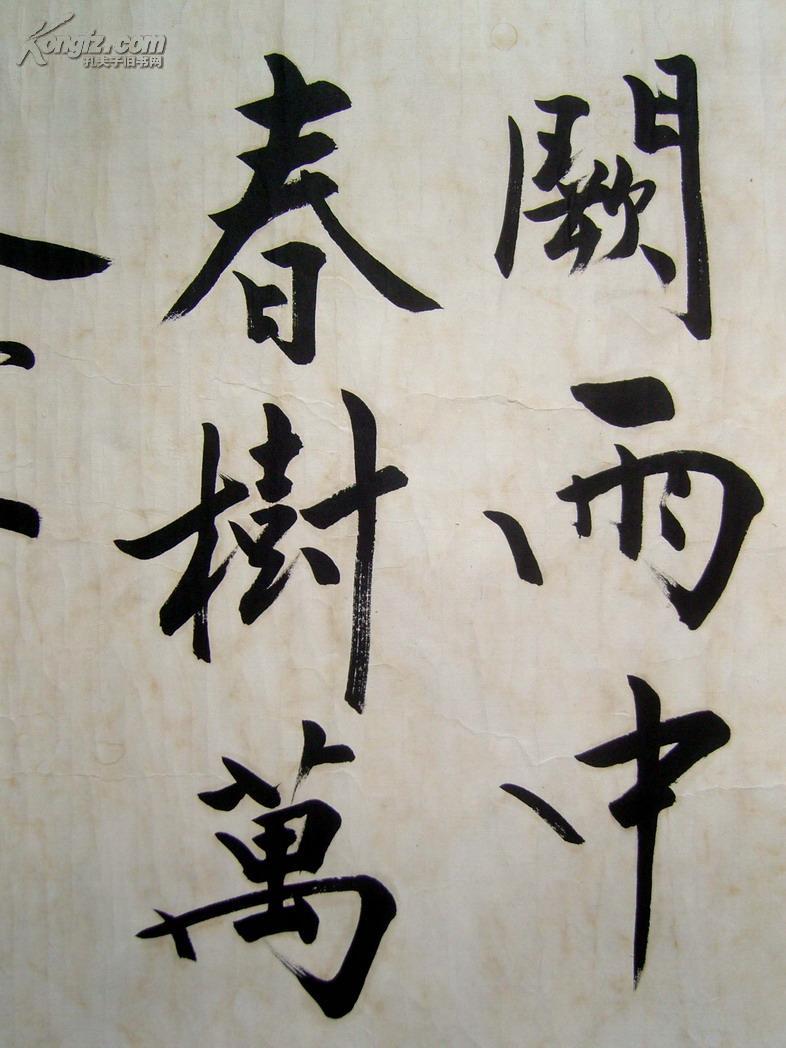 闕雨中
春樹萬
Kongfz.com
孔夫子旧书网